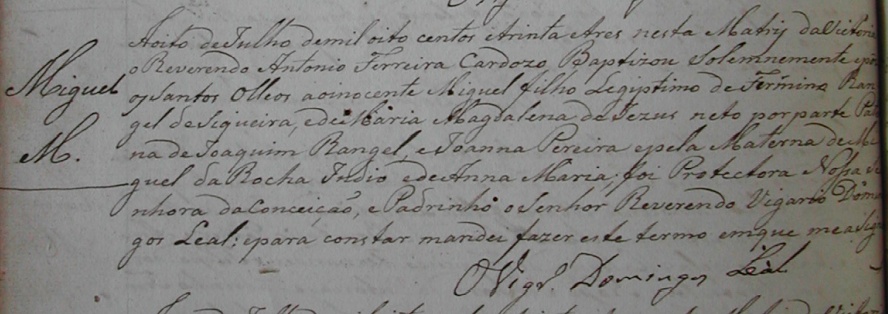 Aoito deJulho demil oito centos etrinta etres nesta Matriz daVictoria
o Reverendo Antonio Ferreira Cardozo Baptizou Solemnemente epoz
os Santos Olleos aoinocente Miguel filho Legiptimo de Fermino Ran
Miguel
gel deSiqueira, edeMaria Magdalena deJezus neto porparte Pater
M.
na deJoaquim Rangel, eJoanna Pereira epela Materna deMi
guel daRocha Indio edeAnna Maria; foi Protectora Nossa Se
nhora daConceição, ePadrinho oSenhor Reverendo Vigario Domin
gos Leal: epara constar mandei fazer este termo emque measigno
OVigr.º Domingos Leal